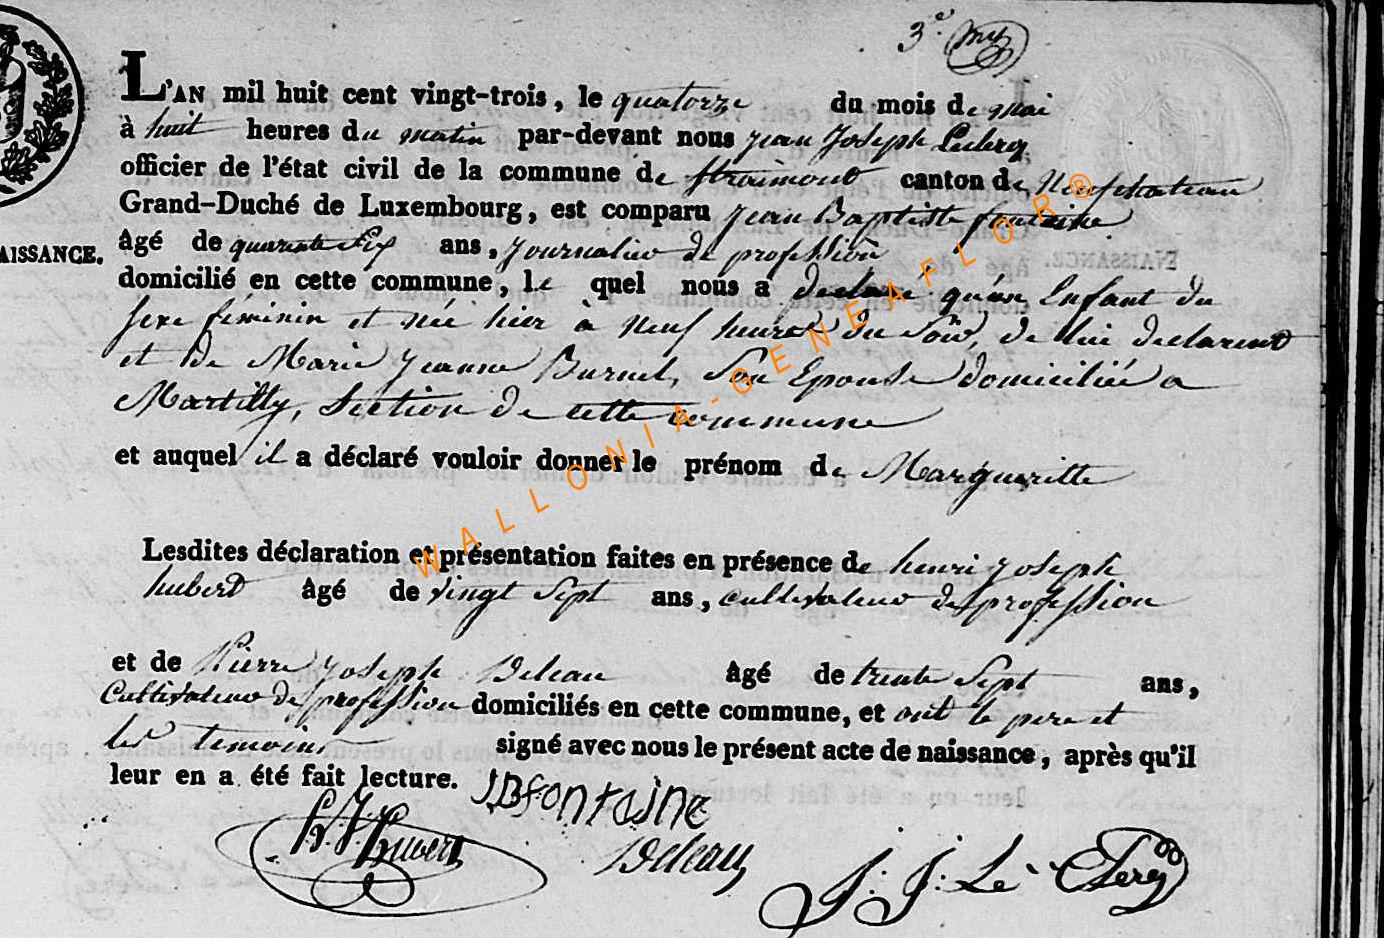 3e
L'AN mil huit cent vingt-trois, le quatorze du mois de mai
à huit heures du matin par-devant nous jean Joseph Leclerq
officier de l'état civil de la commune de straimont canton de Neufchateau
Grand-Duché de Luxembourg, est comparu jean Baptiste fontaine
âgé de quarante six ans, journalier de profession
domicilié en cette commune, le quel nous a declaré qu'un Enfant du
sexe féminin et née hier à neuf heures du Soir, de lui declarant
et de Marie jeanne Burnel, Son Epouse domiciliée a
Martilly, Section de cette commune
et auquel il a déclaré vouloir donner le prénom de Margueritte
Lesdites déclaration et présentation faites en présence de henri joseph
hubert âgé de vingt sept ans, cultivateur de profession
et de Pierre joseph Deleau âgé de trente Sept ans,
Cultivateur de profession domiciliés en cette commune, et ont le pere et
les temoins signé avec nous le présent acte de naissance, après qu'il
leur en a été fait lecture. JBfontaine
h. J. Hubert Deleau J: J: Le Clerq
AISSANCE.
WALLONIA-GENEAFLOR®